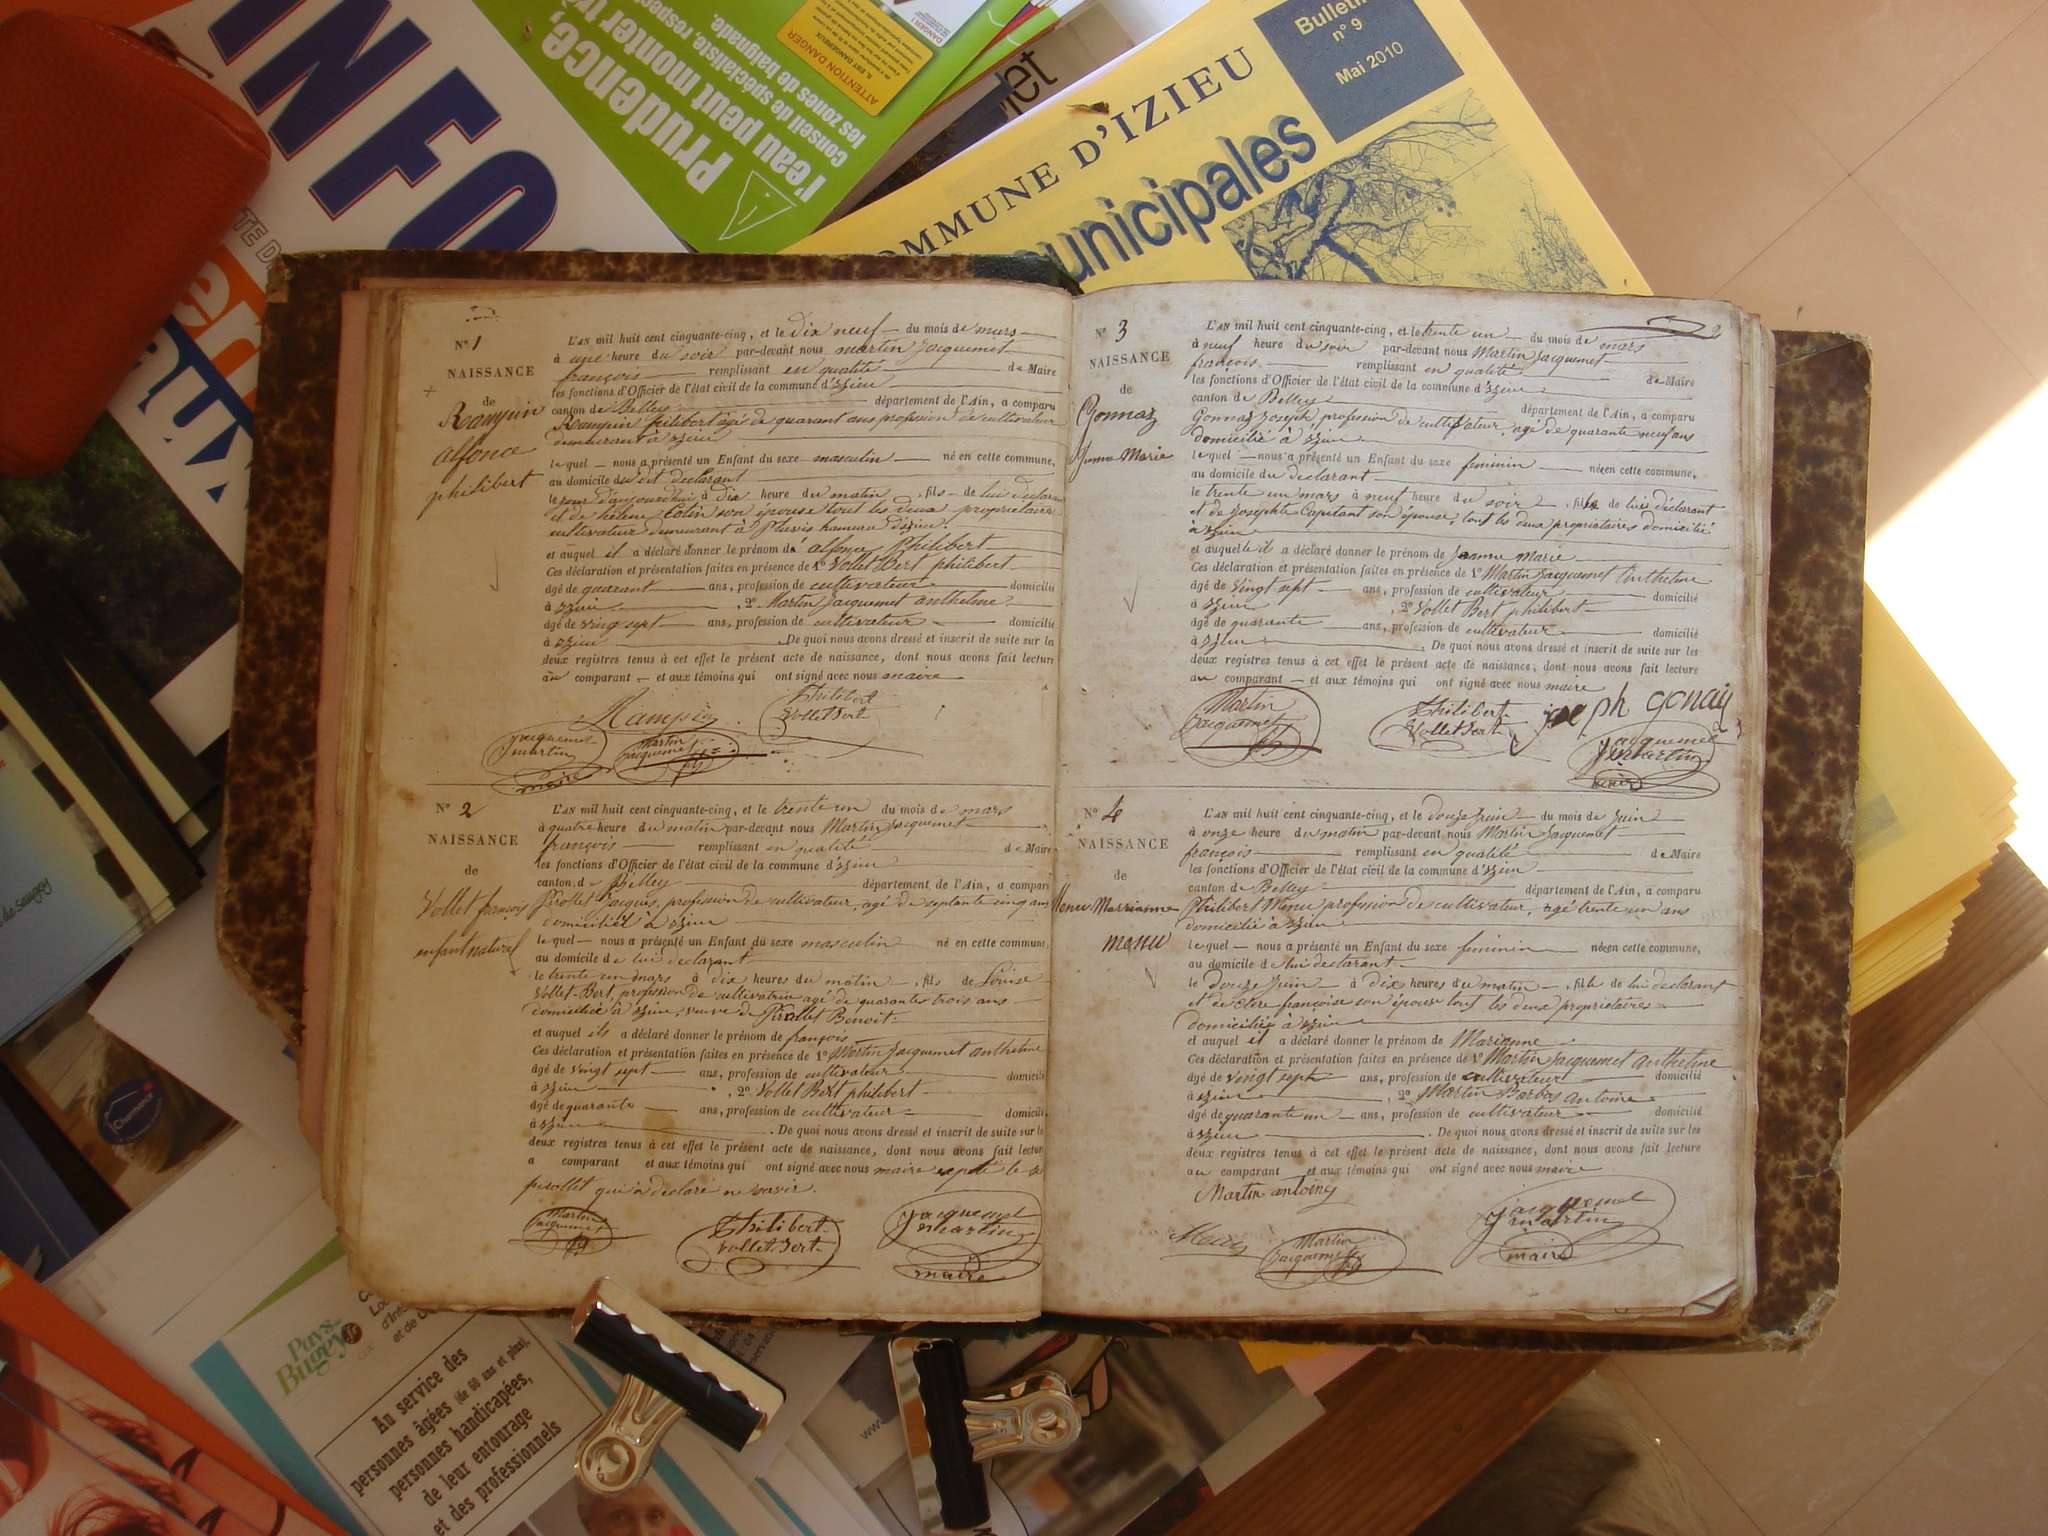 INFO
Prudence,
l'eau peut monter tr
Conseil de spécialiste, respec
les zones de baignade.
ATTENTION DANGER
COMMUNE D'IZIEU
Bulletin
n° 9
Mai 2010
unicipales
N° 1
NAISSANCE
de
Rampin
alfonce
philibert
L'AN mil huit cent cinquante-cinq, et le dix neuf du mois de mars
à une heure du soir par-devant nous martin jacquemet
françois remplissant en qualité de Maire
les fonctions d'Officier de l'état civil de la commune d'izieu
canton de Belley département de l'Ain, a comparu
Rampin filibert âgé de quarant ans profession de cultivateur
demeurant à izieu
lequel nous a présenté un Enfant du sexe masculin né en cette commune,
au domicile du dit déclarant
le jour d'aujourdhui à dix heure du matin, fils de lui déclarant
et de hélène Cotin son épouse tout les deux propriétaires
cultivateur demeurant à Pluvis hameau d'izieu.
et auquel il a déclaré donner le prénom d' alfonce Philibert
Ces déclaration et présentation faites en présence de 1° Vollet Bert philibert
âgé de quarant ans, profession de cultivateur domicilié
à izieu , 2° Martin jacquemet anthelme
âgé de vingt sept ans, profession de cultivateur domicilié
à izieu . De quoi nous avons dressé et inscrit de suite sur les
deux registres tenus à cet effet le présent acte de naissance, dont nous avons fait lecture
au comparant et aux témoins qui ont signé avec nous maire
Rampin
Philibert
Vollet Bert
jacquemet
martin
maire
Martin
jacquemet
N° 2
NAISSANCE
de
Vollet françois
enfant naturel
L'AN mil huit cent cinquante-cinq, et le trente un du mois de mars
à quatre heure du matin par-devant nous Martin jacquemet
françois remplissant en qualité de Maire
les fonctions d'Officier de l'état civil de la commune d'izieu
canton de Belley département de l'Ain, a comparu
Pirollet Jacques, profession de cultivateur, agé de septante cinq ans
domicilié à izieu
lequel nous a présenté un Enfant du sexe masculin né en cette commune,
au domicile de lui declarant
le trente un mars à dix heures du matin , fils de Louise
Vollet-Bert, profession de cultivatrice agé de quarante trois ans
domiciliée à izieu, veuve de Pirollet Benoit.
et auquel ils a déclaré donner le prénom de françois
Ces déclaration et présentation faites en présence de 1° Martin jacquemet anthelme
âgé de vingt sept ans, profession de cultivateur domicilié
à izieu , 2° Vollet Bert philibert
âgé de quarante ans, profession de cultivateur domicilié
à izieu . De quoi nous avons dressé et inscrit de suite sur les
deux registres tenus à cet effet le présent acte de naissance, dont nous avons fait lecture
a comparant et aux témoins qui ont signé avec nous maire le
pirollet qui a déclaré ne savoir.
Martin
jacquemet
Philibert
Vollet Bert
jacquemet
martin
maire
2
N° 3
NAISSANCE
de
Gonnaz
Jeanne Marie
L'AN mil huit cent cinquante-cinq, et le trente un du mois de mars
à neuf heure du soir par-devant nous Martin jacquemet
françois remplissant en qualité de Maire
les fonctions d'Officier de l'état civil de la commune d'izieu
canton de Belley département de l'Ain, a comparu
Gonnaz Joseph profession de cultivateur, agé de quarante neuf ans
domicilié à izieu
lequel nous a présenté un Enfant du sexe feminin née en cette commune,
au domicile du declarant
le trente un mars à neuf heure du soir , fille de lui déclarant
et de Josephte Capitant son épouse, tout les deux propriétaires domicilié
à izieu
et auquelle il a déclaré donner le prénom de Jeanne marie
Ces déclaration et présentation faites en présence de 1° Martin jacquemet Anthelme
âgé de vingt sept ans, profession de cultivateur domicilié
à izieu , 2° Vollet Bert philibert
âgé de quarante ans, profession de cultivateur domicilié
à izieu . De quoi nous avons dressé et inscrit de suite sur les
deux registres tenus à cet effet le présent acte de naissance, dont nous avons fait lecture
au comparant et aux témoins qui ont signé avec nous maire
Martin
jacquemet
Philibert
Vollet Bert
joseph gonaz
jacquemet
martin
maire
N° 4
NAISSANCE
de
Menu Marrianne
manu
L'AN mil huit cent cinquante-cinq, et le douze juin du mois de juin
à onze heure du matin par-devant nous Martin jacquemet
françois remplissant en qualité de Maire
les fonctions d'Officier de l'état civil de la commune d'izieu
canton de Belley département de l'Ain, a comparu
Philibert Menu profession de cultivateur, agé trente un ans
domicilié à izieu
lequel nous a présenté un Enfant du sexe feminin née en cette commune,
au domicile de lui declarant
le douze juin à dix heures du matin , fille de lui declarant
et de françoise son épouse tout les deux propriétaires
domicilié à izieu
et auquel il a déclaré donner le prénom de Marianne
Ces déclaration et présentation faites en présence de 1° Martin jacquemet anthelme
âgé de vingt sept ans, profession de cultivateur domicilié
à izieu , 2° Martin Barbaz antoine
âgé de quarante un ans, profession de cultivateur domicilié
à izieu . De quoi nous avons dressé et inscrit de suite sur les
deux registres tenus à cet effet le présent acte de naissance, dont nous avons fait lecture
au comparant et aux témoins qui ont signé avec nous maire
Martin antoine
Menu
Martin
jacquemet
jacquemet
martin
maire
Pays
Bugey
Au service des
personnes âgées (de 60 ans et plus),
personnes handicapées,
de leur entourage
et des professionnels